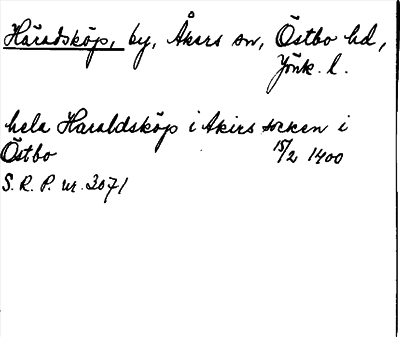 Häradsköp, by, Åkers sn, Östbo hd,
Jönk. l.
hela Haraldsköp i Akirs socken i
Östbo 15/2 1400
S. R. P. nr. 3071